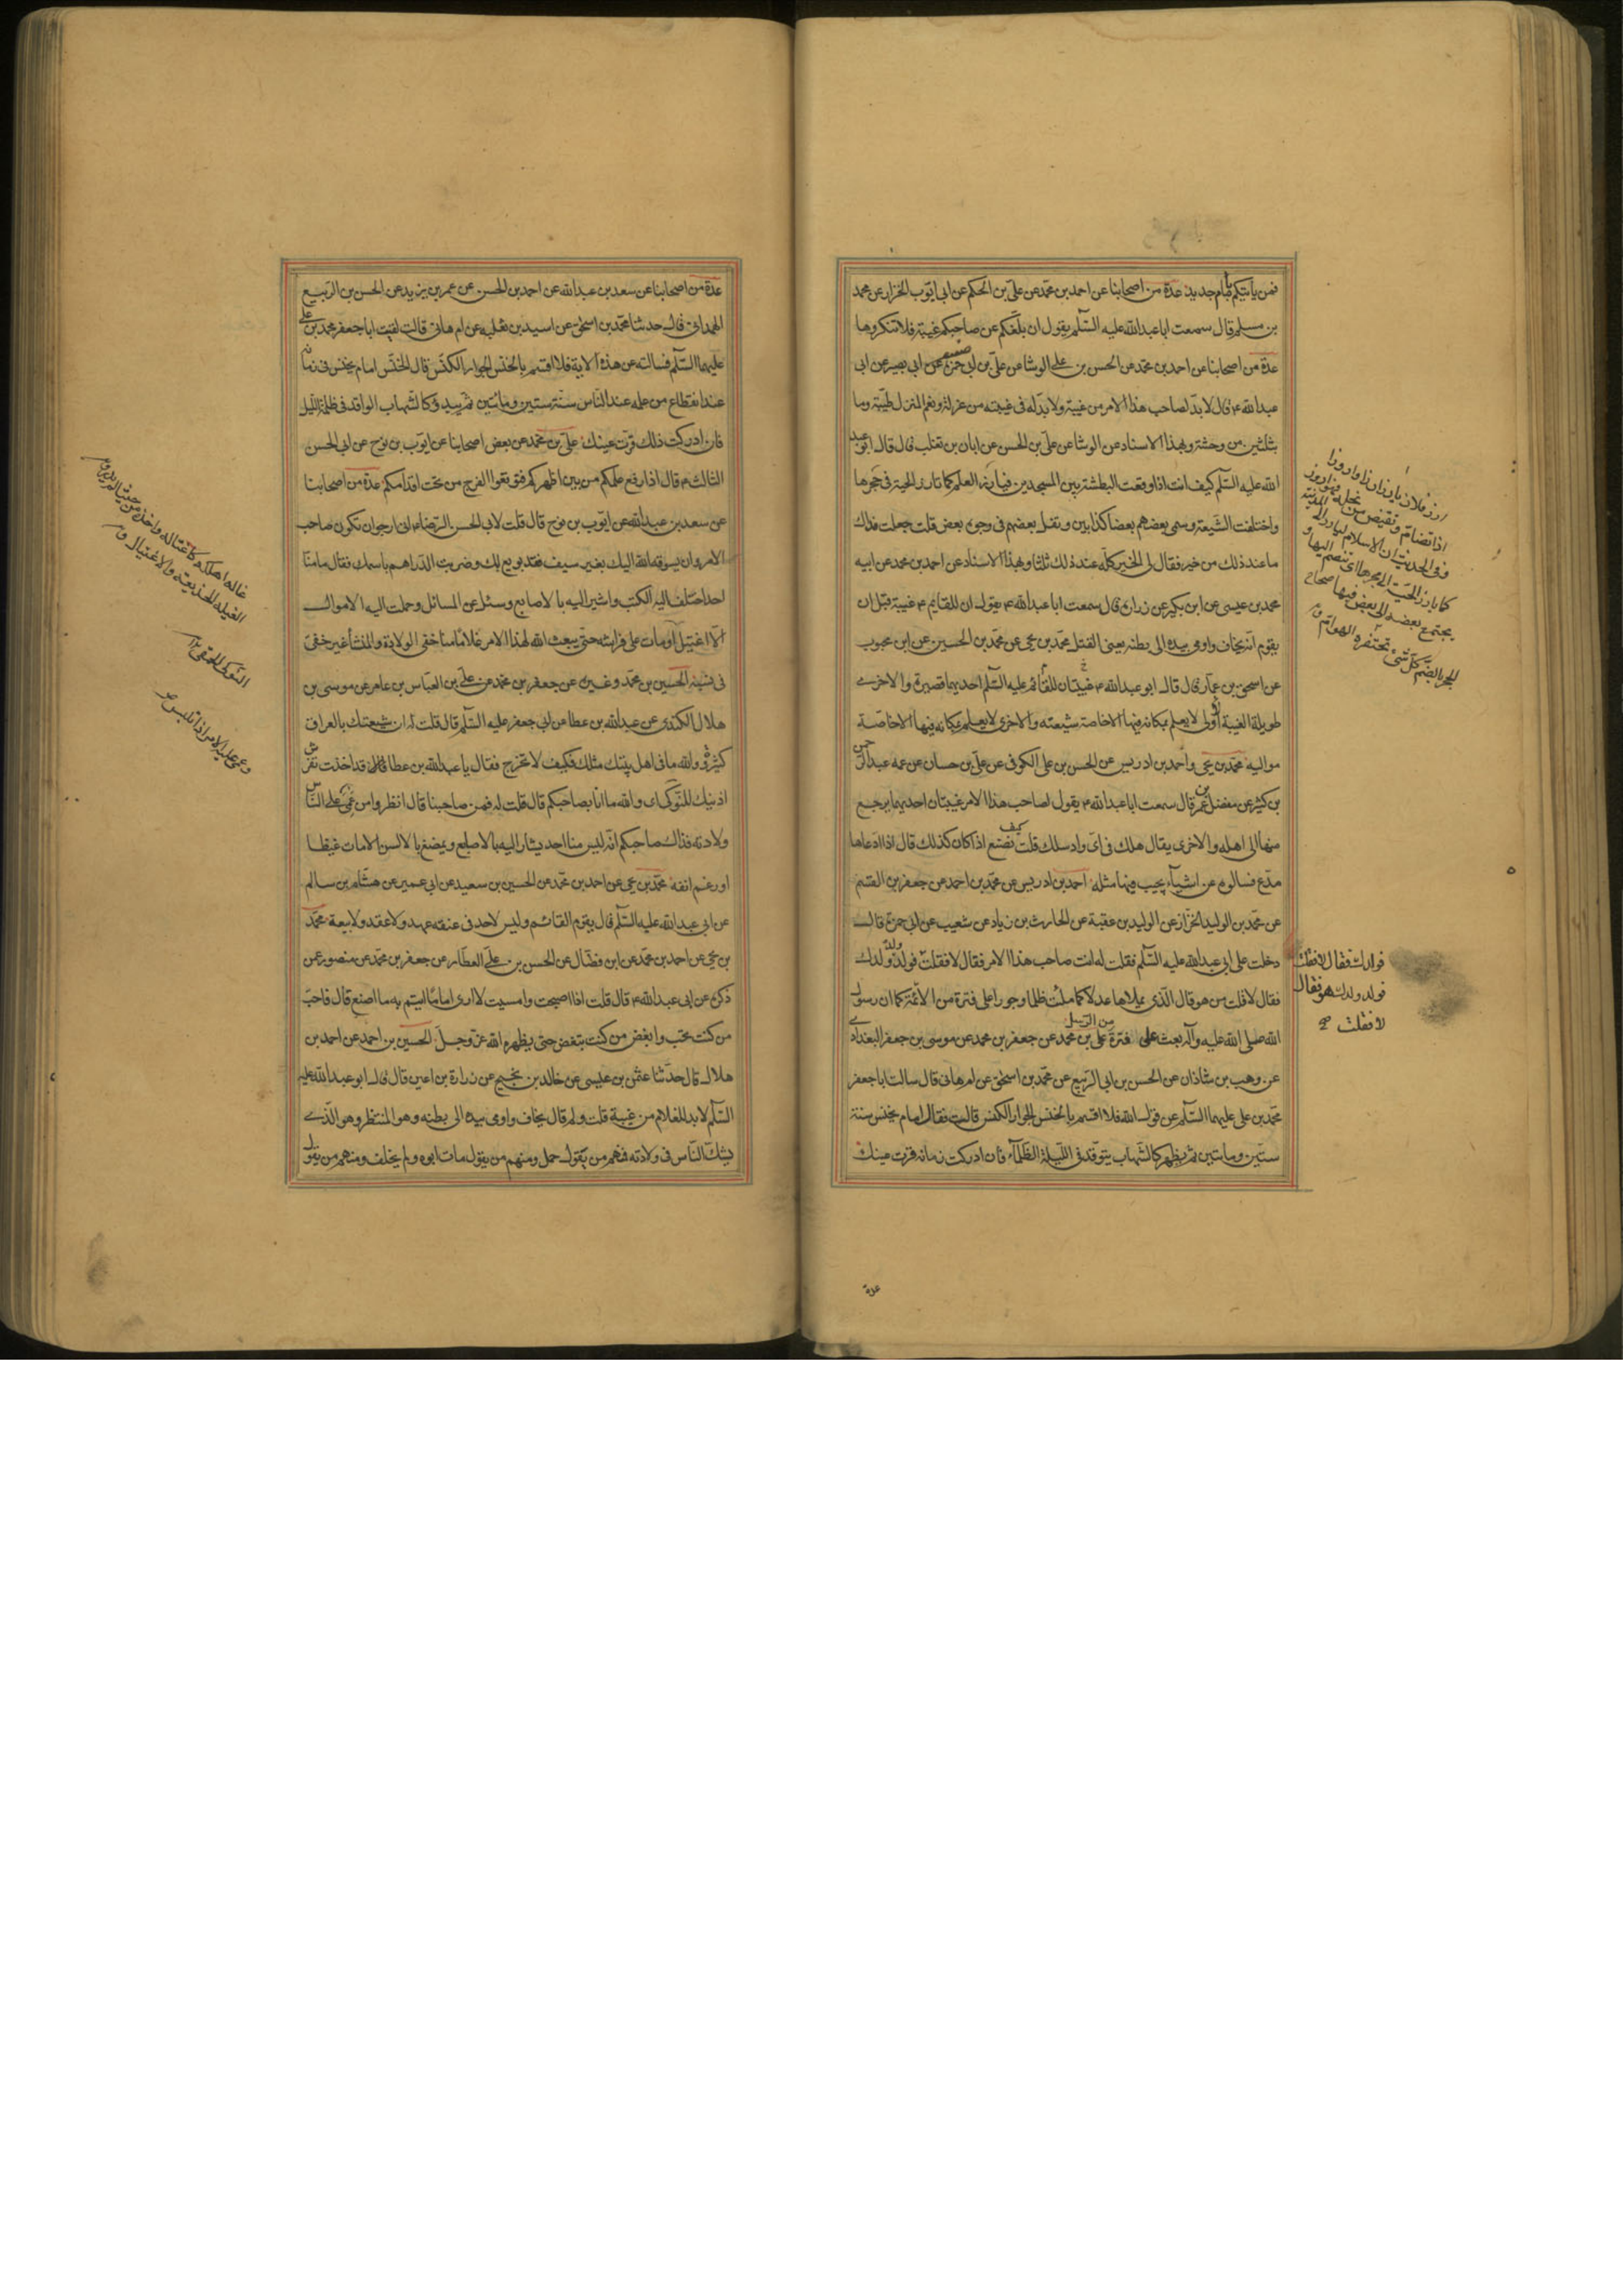 فمن ياتيكم بامام جديد عدة من اصحابنا عن احمد بن محمد عن على بن الحكم عن ابى ايوب الخزاز عن محمد
بن مسلم قال سمعت ابا عبدالله عليه السلم يقول ان بلغكم عن صاحبكم غيبة فلا تنكروها
عدة من اصحابنا عن احمد بن محمد عن الحسن بن على الوشا عن على بن ابى حمزة عن ابى بصير عن ابى
عبدالله ع قال لا بد لصاحب هذا الامر من غيبة ولا بد له فى غيبته من عزلة ونعم المنزل طيبة وما
بثلثين من وحشة وبهذا الاسناد عن الوشا عن على بن الحسن عن ابان بن تغلب قال قال ابو عبد
الله عليه السلم كيف انت اذا وقعت البطشة بين المسجدين فيارز العلم كما تارز الحية فى جحرها
واختلفت الشيعة وسمى بعضهم بعضا كذابين وتفل بعضهم فى وجوه بعض قلت جعلت فداك
ما عند ذلك من خير فقال لى الخير كله عند ذلك ثلثا وبهذا الاسناد عن احمد بن محمد عن ابيه
محمد بن عيسى عن ابن بكير عن زرارة قال سمعت ابا عبدالله ع يقول ان للقايم ع غيبة قبل ان
يقوم انه يخاف واومى بيده الى بطنه يعنى القتل محمد بن يحيى عن محمد بن الحسين عن ابن محبوب
عن اسحق بن عمار قال قال ابو عبدالله ع غيبتان للقائم عليه السلم احديهما قصيرة والاخرى
طويلة الغيبة الاولى لا يعلم بمكانه فيها الا خاصة شيعته والاخرى لا يعلم بمكانه فيها الا خاصة
مواليه محمد بن يحيى واحمد بن ادريس عن الحسن بن على الكوفى عن على بن حسان عن عمه عبدالرحمن
بن كثير عن مفضل بن عمر قال سمعت ابا عبدالله ع يقول لصاحب هذا الامر غيبتان احديهما يرجع
منها الى اهله والاخرى يقال هلك فى اى واد سلك قلت كيف نصنع اذا كان كذلك قال اذا ادعاها
مدع فسالوه عن اشياء يجيب فيها مثله احمد بن ادريس عن محمد بن احمد عن جعفر بن القسم
عن محمد بن الوليد الخزاز عن الوليد بن عقبة عن الحارث بن زياد عن شعيب عن ابى حمزة قال
دخلت على ابى عبدالله عليه السلم فقلت له انت صاحب هذا الامر فقال لا فقلت فولد ولدك
فقال لا قلت من هو قال الذى يملاها عدلا كما ملئت ظلما وجورا على فترة من الائمة كما ان رسول
الله صلى الله عليه وآله بعث على فترة من الرسل على بن محمد عن جعفر بن محمد عن موسى بن جعفر البغدادى
عن وهب بن شاذان عن الحسن بن ابى الربيع عن محمد بن اسحق عن ام هانى قال سالت ابا جعفر
محمد بن على عليهما السلم عن قول الله فلا اقسم بالخنس الجوار الكنس قالت فقال امام يخنس سنة
ستين وماتين ثم يظهر كالشهاب يتوقد فى الليلة الظلمآء فان ادركت زمانه قرت عينك
عدة
ارز فلان يارز ارزا واروزا
اذا تضام وتقبض من بخله فهو اروز
وفى الحديث ان الاسلام ليارز الى المدينة
كما يارز الحية الى جحرها اى تنضم اليها و
يجتمع بعضه الى بعض فيها صحاح
الجحر بالضم كل شئ تحتفره الهوام ق
فولدك فقال لا فقلت
فولد ولدك هو فقال
لا فقلت صح
عدة من اصحابنا عن سعد بن عبدالله عن احمد بن الحسن عن عمر بن يزيد عن الحسن بن الربيع
الهمدانى قال حدثنا محمد بن اسحق عن اسيد بن ثعلبه عن ام هانى قالت لقيت ابا جعفر محمد بن على
عليهما السلم فسالته عن هذه الاية فلا اقسم بالخنس الجوار الكنس قال الخنس امام يخنس فى زمانه
عند انقطاع من علمه عند الناس سنة ستين ومأتين ثم يبدو كالشهاب الواقد فى ظلمة الليل
فان ادركت ذلك قرت عينك على بن محمد عن بعض اصحابنا عن ايوب بن نوح عن ابى الحسن
الثالث ع قال اذا رفع علمكم من بين اظهركم فتوقعوا الفرج من تحت اقدامكم عدة من اصحابنا
عن سعد بن عبدالله عن ايوب بن نوح قال قلت لابى الحسن الرضا ع انى ارجو ان تكون صاحب
الامر وان يسوقه الله اليك بغير سيف فقد بويع لك وضربت الدراهم باسمك فقال ما منا
احد اختلفت اليه الكتب واشير اليه بالاصابع وسئل عن المسائل وحملت اليه الاموال
الا اغتيل او مات على فراشه حتى يبعث الله لهذا الامر غلاما منا خفى الولادة والمنشأ غير خفى
فى نسبه الحسين بن محمد وغيره عن جعفر بن محمد عن على بن العباس بن عامر عن موسى بن
هلال الكندى عن عبدالله بن عطا عن ابى جعفر عليه السلم قال قلت له ان شيعتك بالعراق
كثيرة والله ما فى اهل بيتك مثلك فكيف لا تخرج فقال يا عبدالله بن عطا قد اخذت تفرش
اذنيك للنوكى اى والله ما انا بصاحبكم قال قلت له فمن صاحبنا قال انظروا من عمى على الناس
ولادته فذاك صاحبكم انه ليس منا احد يشار اليه بالاصابع ويمضغ بالالسن الا مات غيظا
او رغم انفه محمد بن يحيى عن احمد بن محمد عن الحسين بن سعيد عن ابى عمير عن هشام بن سالم
عن ابى عبدالله عليه السلم قال يقوم القائم وليس لاحد فى عنقه عهد ولا عقد ولا بيعة محمد
بن يحيى عن احمد بن محمد عن ابن فضال عن الحسن بن على العطار عن جعفر بن محمد عن منصور عمن
ذكره عن ابى عبدالله ع قال قلت اذا اصبحت وامسيت لا ارى اماما ائتم به ما اصنع قال فاحب
من كنت تحب وابغض من كنت تبغض حتى يظهره الله عز وجل الحسين بن احمد عن احمد بن
هلال قال حدثنا عثمن بن عيسى عن خالد بن نجيح عن زرارة بن اعين قال قال ابو عبدالله عليه
السلم لا بد للغلام من غيبة قلت ولم قال يخاف واومى بيده الى بطنه وهو المنتظر وهو الذى
يشك الناس فى ولادته فمنهم من يقول حمل ومنهم من يقول مات ابوه ولم يخلف ومنهم من يقول
غاله اهلكه كاغتاله واخذه من حيث لم يدر ق
الغيلة الخديعة والاغتيال ق
النوكى الحمقى
وعمى عليه الامر اذا التبس ص